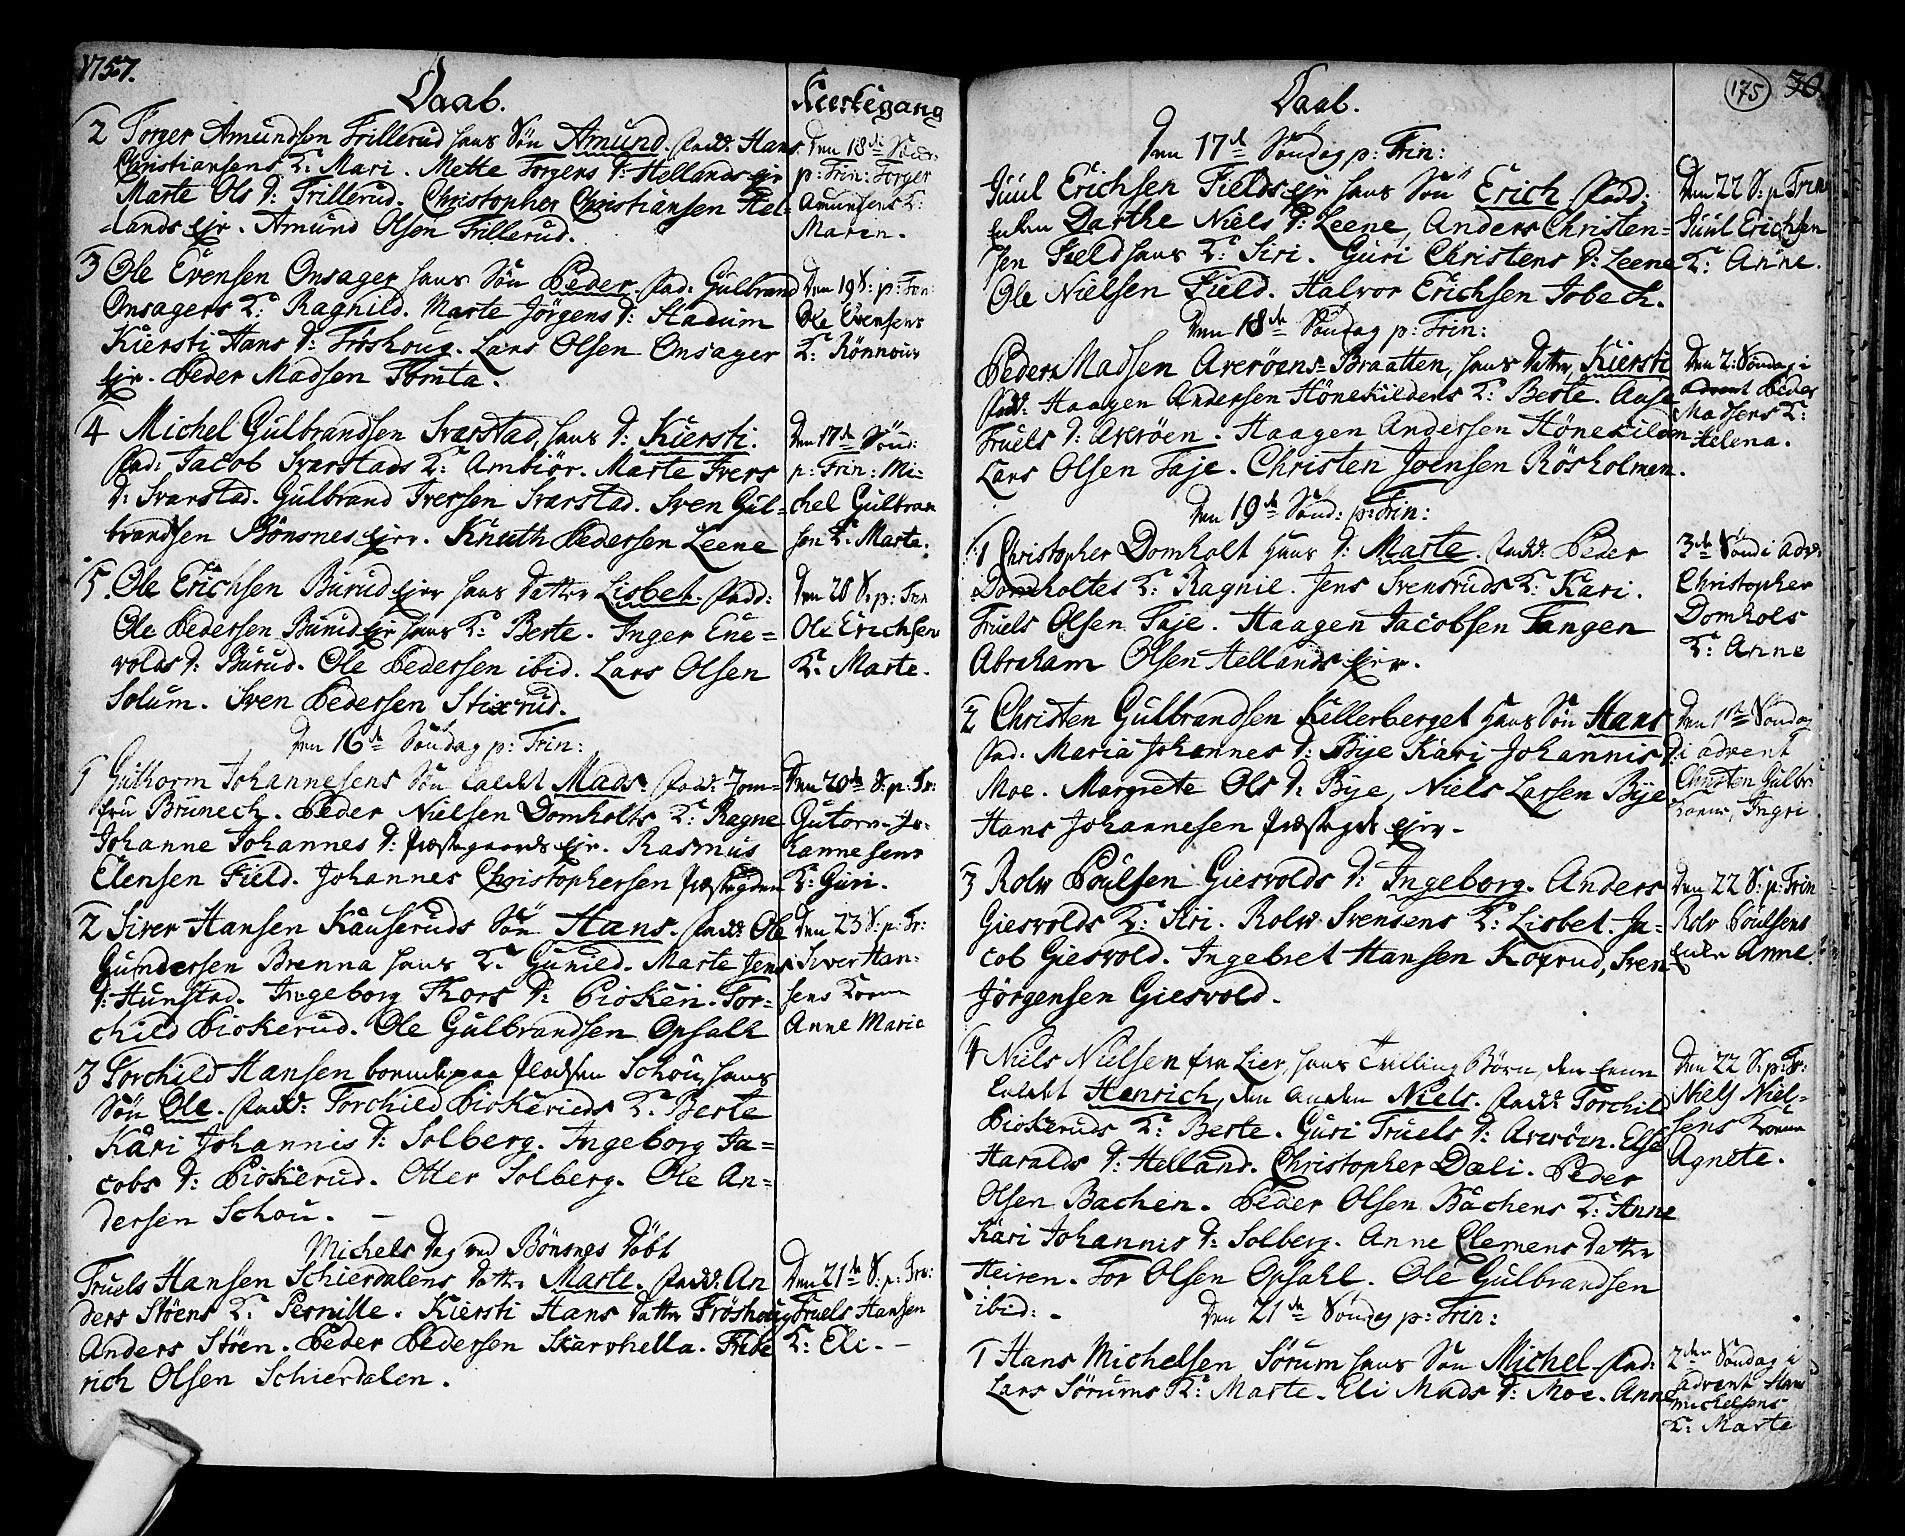 1757.
Daab.
Kierkegang
2 Torger Amundsen Frillerud hans Sön Amund. fadd: Hans
Christiansens K: Mari. Mette Torgers D: Hellands ejr
Marte Ols D: Frillerud. Christopher Christiansen Hel-
lands ejr. Amund Olsen Frillerud.
Den 18de Sönd:
p: Trin: Torger
Amunsens K:
Maren.
3 Ole Evensen Onsager hans Sön Peder. fad: Gulbrand
Onsagers K: Ragnild. Marte Jörgens D: Stadum
Kiersti Hans D: Fröshoug. Lars Olsen Onsager
ejr. Peder Madsen Tomta.
Den 19 S: p: Trin:
Ole Evensens
K: Rönnou
4 Michel Gulbrandsen Svarstad, hans D: Kiersti.
fad: Jacob Svarstads K: Ambiör. Marte Ivers
D: Svarstad. Gulbrand Iversen Svarstad. Sven Gul-
brandsen Bönsnes ejer. Knuth Pedersen Leene
Den 17de Sönd:
p: Trin: Mi-
chel Gulbran
sen K: Marte.
5. Ole Erichsen Burud ejer hans Datter Lisbet. fadd:
Ole Pedersen Burud ejr hans K: Berte. Inger Ene-
volds D: Burud. Ole Pedersen ibid. Lars Olsen
Solum. Sven Pedersen Stixrud.
Den 20 S: p: Trin
Ole Erichsens
K: Marte.
Den 16de Söndag p: Trin:
1 Guthorm Johannesens Sön kaldet Mads. fadd: Jom-
fru Brunech. Peder Nielsen Domholts K: Ragne
Johanne Johannes D: Præstegaards ejr. Rasmus
Elensen Field. Johannes Christophersen Præstegden
Den 20de S: p: Tr:
Gutorm Jo-
hannesens
K: Guri.
2 Siver Hansen Kauseruds Sön Hans. fadd: Ole
Gundersen Brenna hans K: Gunild. Marte Jens
D: Hunstad. Ingeborg Thors D: Piokeri. Tor-
child Piokerud. Ole Gulbrandsen Opsahl
Den 23 S: p: Tr:
Siver Han-
sens Kone
Anne Marie
3 Torchild Hansen boende paa Pladsen Schou, hans
Sön Ole. fadd: Torchild Piokeruds K: Berte
Kari Johannis D: Solberg. Ingeborg Ja-
cobs D: Piokerud. Otter Solberg. Ole An-
dersen Schou. -
Michels Dag ved Bönsnes Döbt
Truels Hansen Schierdalens Datter Marte. fadd: An
ders Störens K: Pernille. Kiersti Hans Datter Fröshoug
Anders Stören. Peder Pedersen Skarvhella. Fride
rich Olsen Schierdalen.
Den 21de S: p: Trin:
Truels Hansen
K: Eli. -
175
30.
Daab.
Den 17de Söndag p: Trin:
Juul Erichsen Fields ejr hans Sön Erich fadd:
Enken Darthe Niels D: Leene, Anders Christen-
sen Field hans K: Siri. Guri Christens D: Leene
Ole Nielsen Field. Halvor Erichsen Jobech.
Den 22 S: p: Trin
Juul Erichsen
K: Anne.
Den 18de Söndag p: Trin:
Peder Madsen Averöens Braatten, hans Datter Kiersti
fadd: Haagen Andersen Hönekildens K: Berte. Aase
Truels D: Averöen. Haagen Andersen Hönekilden
Lars Olsen Faje. Christen Joensen Rösholmen.
Den 2: Söndag i
Advent Peder
Madsens K:
Helena.
Den 19de Sönd: p: Trin:
1 Christopher Domholt hans D: Marte. fadd: Peder
Domholtes K: Ragnil. Jens Svensruds K: Kari.
Truels Olsen Faje. Haagen Jacobsen Tangen
Abraham Olsen Hellands ejer.
3de Sönd i adv:
Christopher
Domhols
K: Anne
2 Christen Gulbrandsen Kellerberget hans Sön Hans
fad: Maria Johannes D: Bye Kari Johannis D:
Moe. Margrete Ols D: Bye, Niels Larsen Bye
Hans Johannesen Præstegds ejer.
Den 1ste Söndag
i advent
Christen Gulbr:
Kone, Ingri
3 Rolv Poulsen Giesvolds D: Ingeborg. Anders
Giesvolds K: Siri. Rolv Svensens K: Lisbet. Ja-
cob Giesvold. Ingebret Hansen Koxrud, Sven
Jörgensen Giesvold.
Den 22 S: p: Trin
Rolv Poulsens
Enke Anne.
4 Niels Nielsen fra Lier, hans Tvilling Börn, den eene
kaldet Henrich, den anden Niels. fadd: Torchild
Piokeruds K: Berte. Guri Truels D: Averöen. Else
Haralds D: Helland. Christopher Dæli. Peder
Olsen Bachen. Peder Olsen Bachens K: Anne
Kari Johannis D: Solberg. Anne Clemens Datter
Heiren. Tor Olsen Opsahl. Ole Gulbrandsen
ibid: -
Den 22 S: p: Tr:
Niels Niel-
sens Kone
Agnete.
Den 21de Söndag p: Trin:
1 Hans Michelsen Sörum hans Sön Michel. fad:
Lars Sörums K: Marte. Eli Mads D: Moe. Anne
2den Söndag i
advent Hans
Michelsens
K: Marte